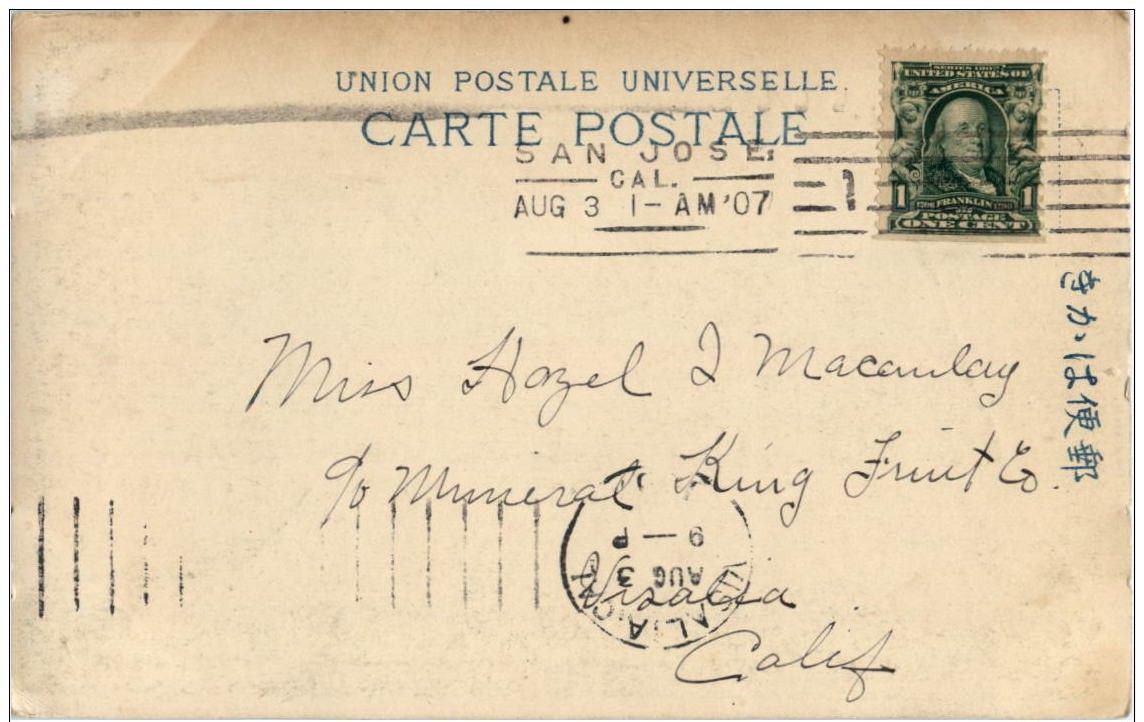 UNION POSTALE UNIVERSELLE.
CARTE POSTALE
SERIES 1902
UNITED STATES OF
AMERICA
1 FRANKLIN 1
POSTAGE
ONE CENT
SAN JOSE,
CAL.
AUG 3 1-AM '07
1
きかゝは便郵
Miss Hazel I Macaulay
c/o Mineral King Fruit Co.
Visalia
Calif
VISALIA, CAL
AUG 3
9 — P